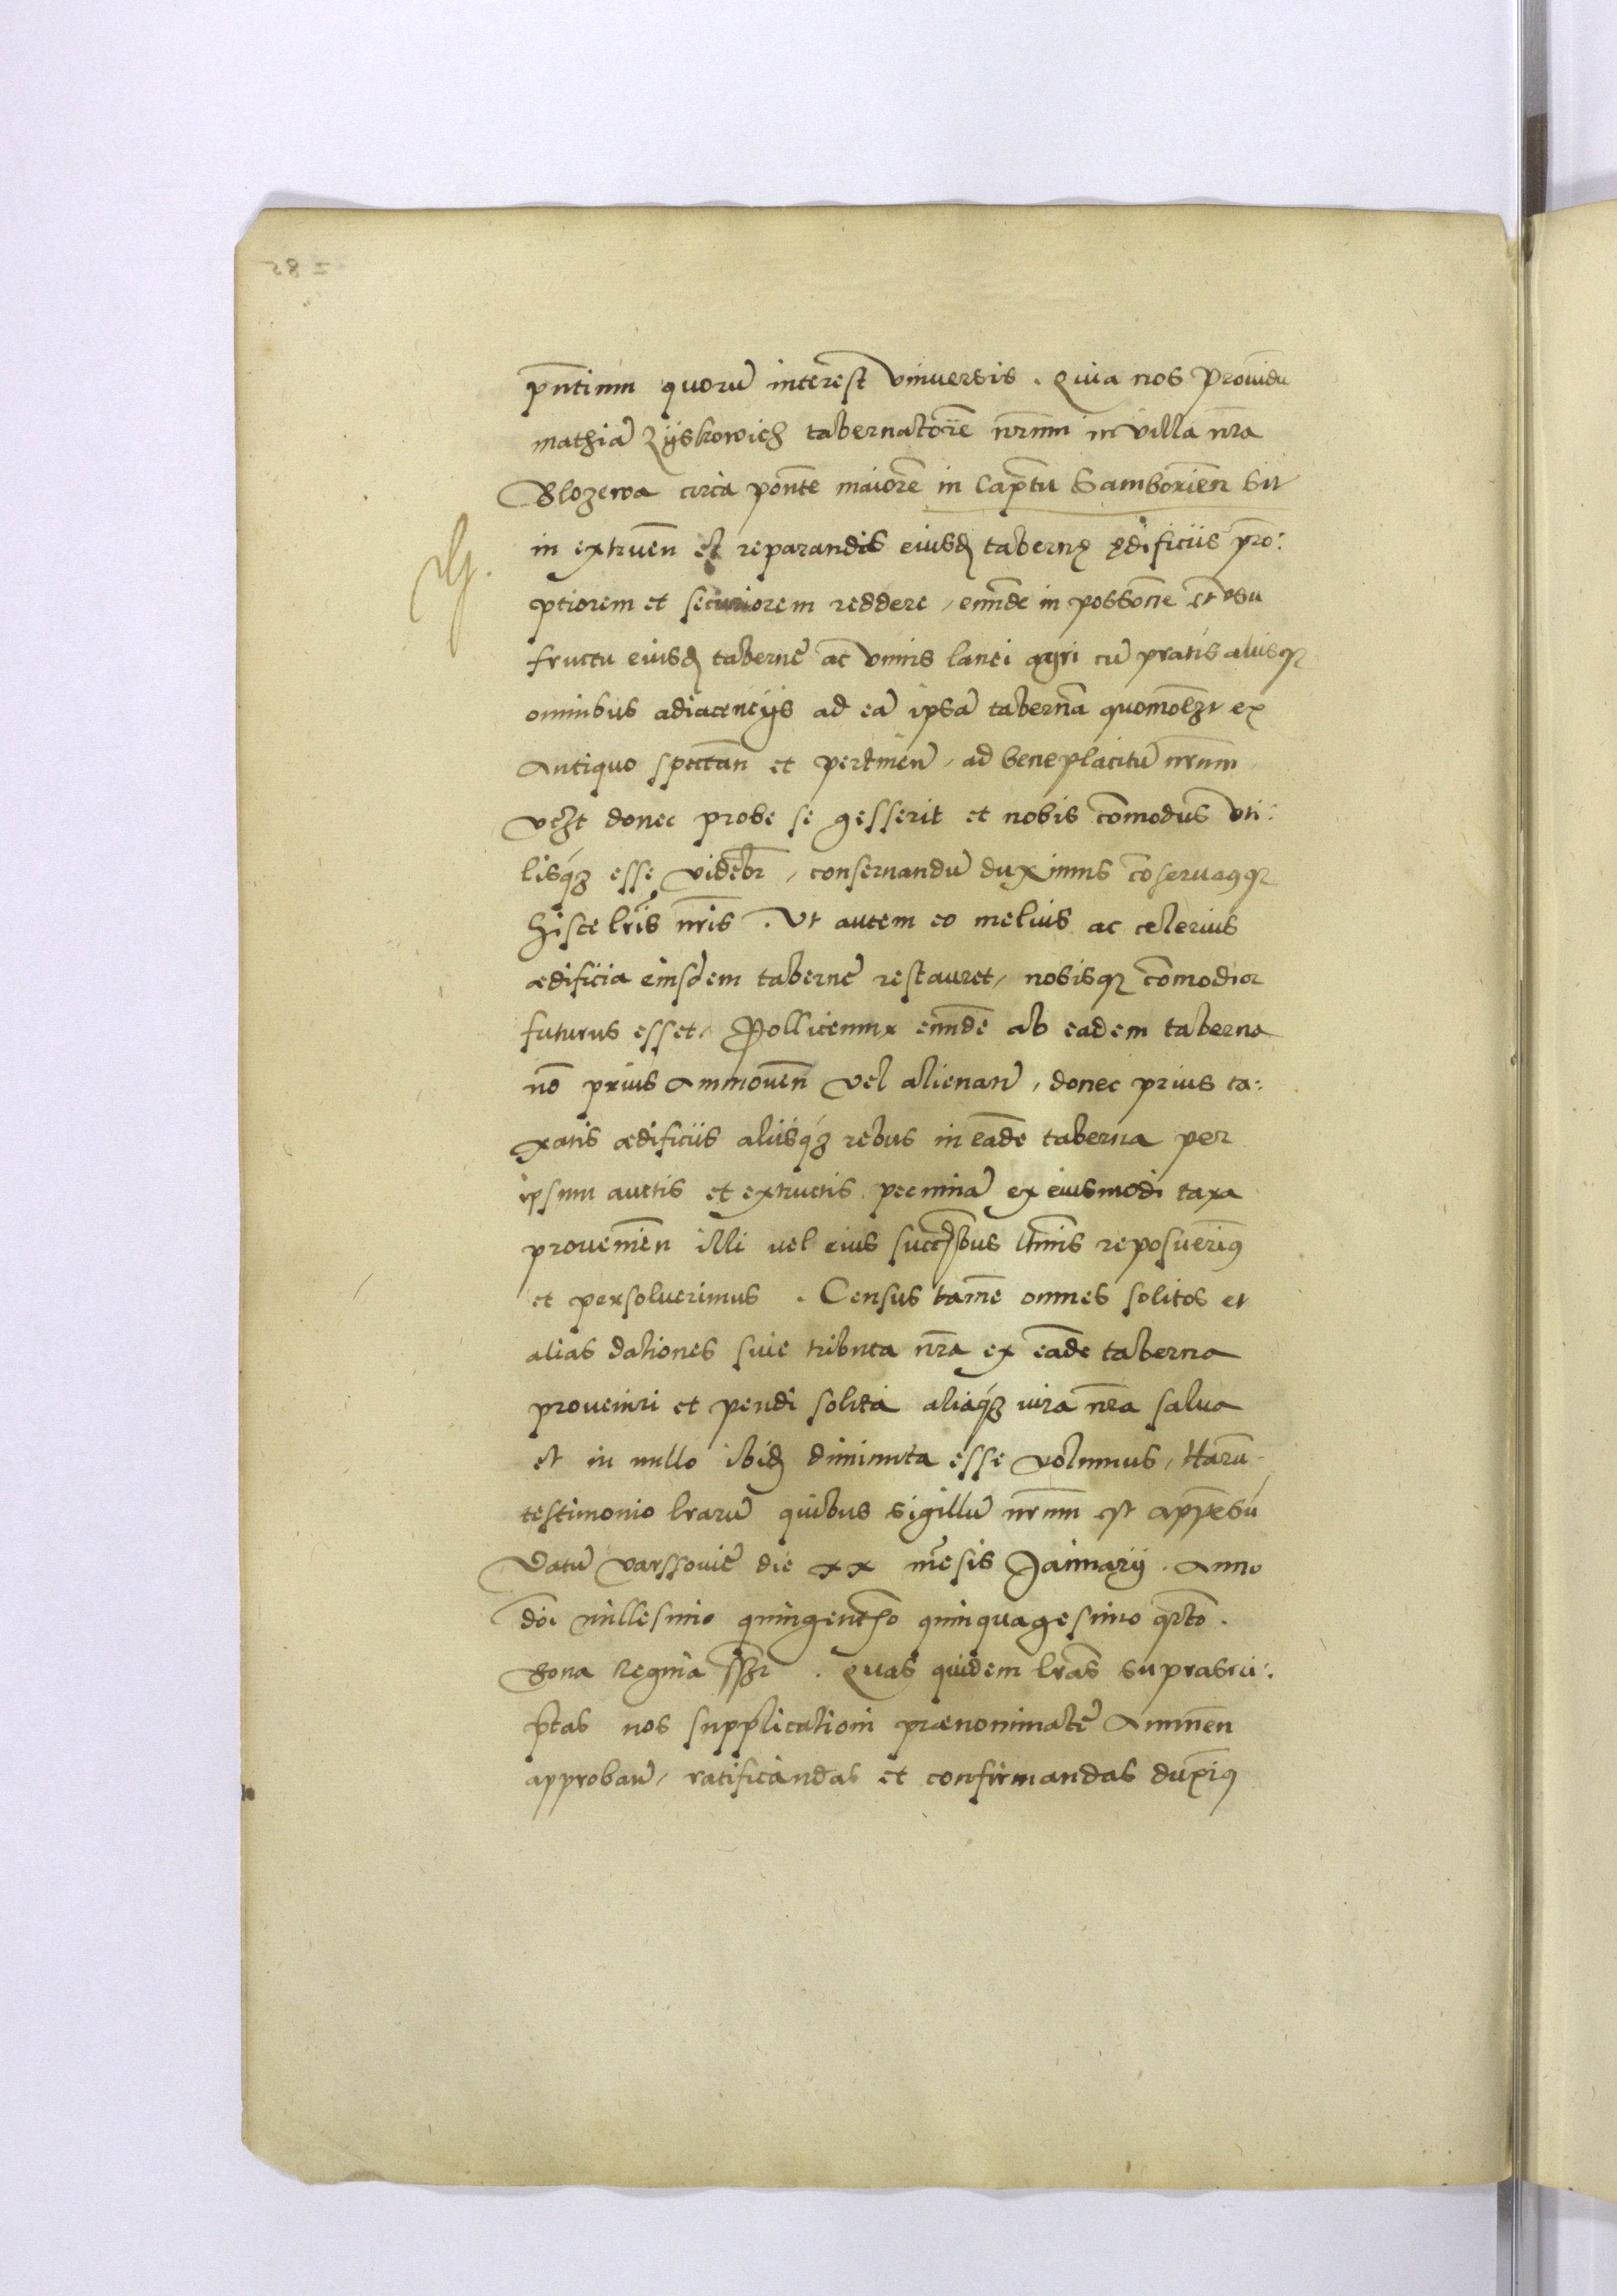 pn̄tium quorū interest vniuersis . Quia nos prouidū
mathiā Zÿskowich tabernatorē nr̄um in villa nr̄a
Blozewa circa pontē maiorē in Cap̄tu Samborien̄ sit
in extruen̄ et reparandis eiusđ tabernę ędificiis pro:
ptiorem et securiorem reddere, eundē in possōne et vsu
fructu eiusđ tabernę ac vnius lanei agri cū pratis aliisq₃
omnibus adiacencÿs ad eā ipsā tabernā quomōlꝫt ex
Antiquo spectan̄ et pertinen̄, ad beneplacitū nr̄um
vꝫt donec probe se gesserit et nobis comodus vti:
lisqꝫ esse videbr̄, conseruandū duximus cōseruaꝰq₃
Hisce lr̄is nr̄is . Vt autem eo melius ac celerius
ædificia eiusdem tabernę restauret, nobisq₃ cōmodior
futurus esset, Pollicemur eundē ab eadem taberna
nō prius Ammouen̄ vel alienan̄, donec prius ta:
xatis ædificiis aliisqꝫ rebus in eadē taberna per
ipsum auctis et extructis pecuniā ex eiusmodi taxa
prouenien̄ illi vel eius succ̄sbus ltīmis reposuerimꝰ
et persoluerimus . Census tamē omnes solitos et
alias dationes siue tributa nr̄a ex eadē taberna
proueniri et pendi solita aliaqꝫ iura nr̄a salua
et in nullo ibiđ diminuta esse volumus, Harū
testimonio lrarū quibus sigillū nr̄um est appēsū
Datū varssouię die xx mēsis Januarÿ . Anno
dōi millesimo quingentꝭo quinquagesimo qrto .
Bona Regina sszt . Quas quidem lr̄as suprascri:
ptas nos supplicationi prænominatę Annuen̄
approban̄, ratificandas et confirmandas duximꝰ